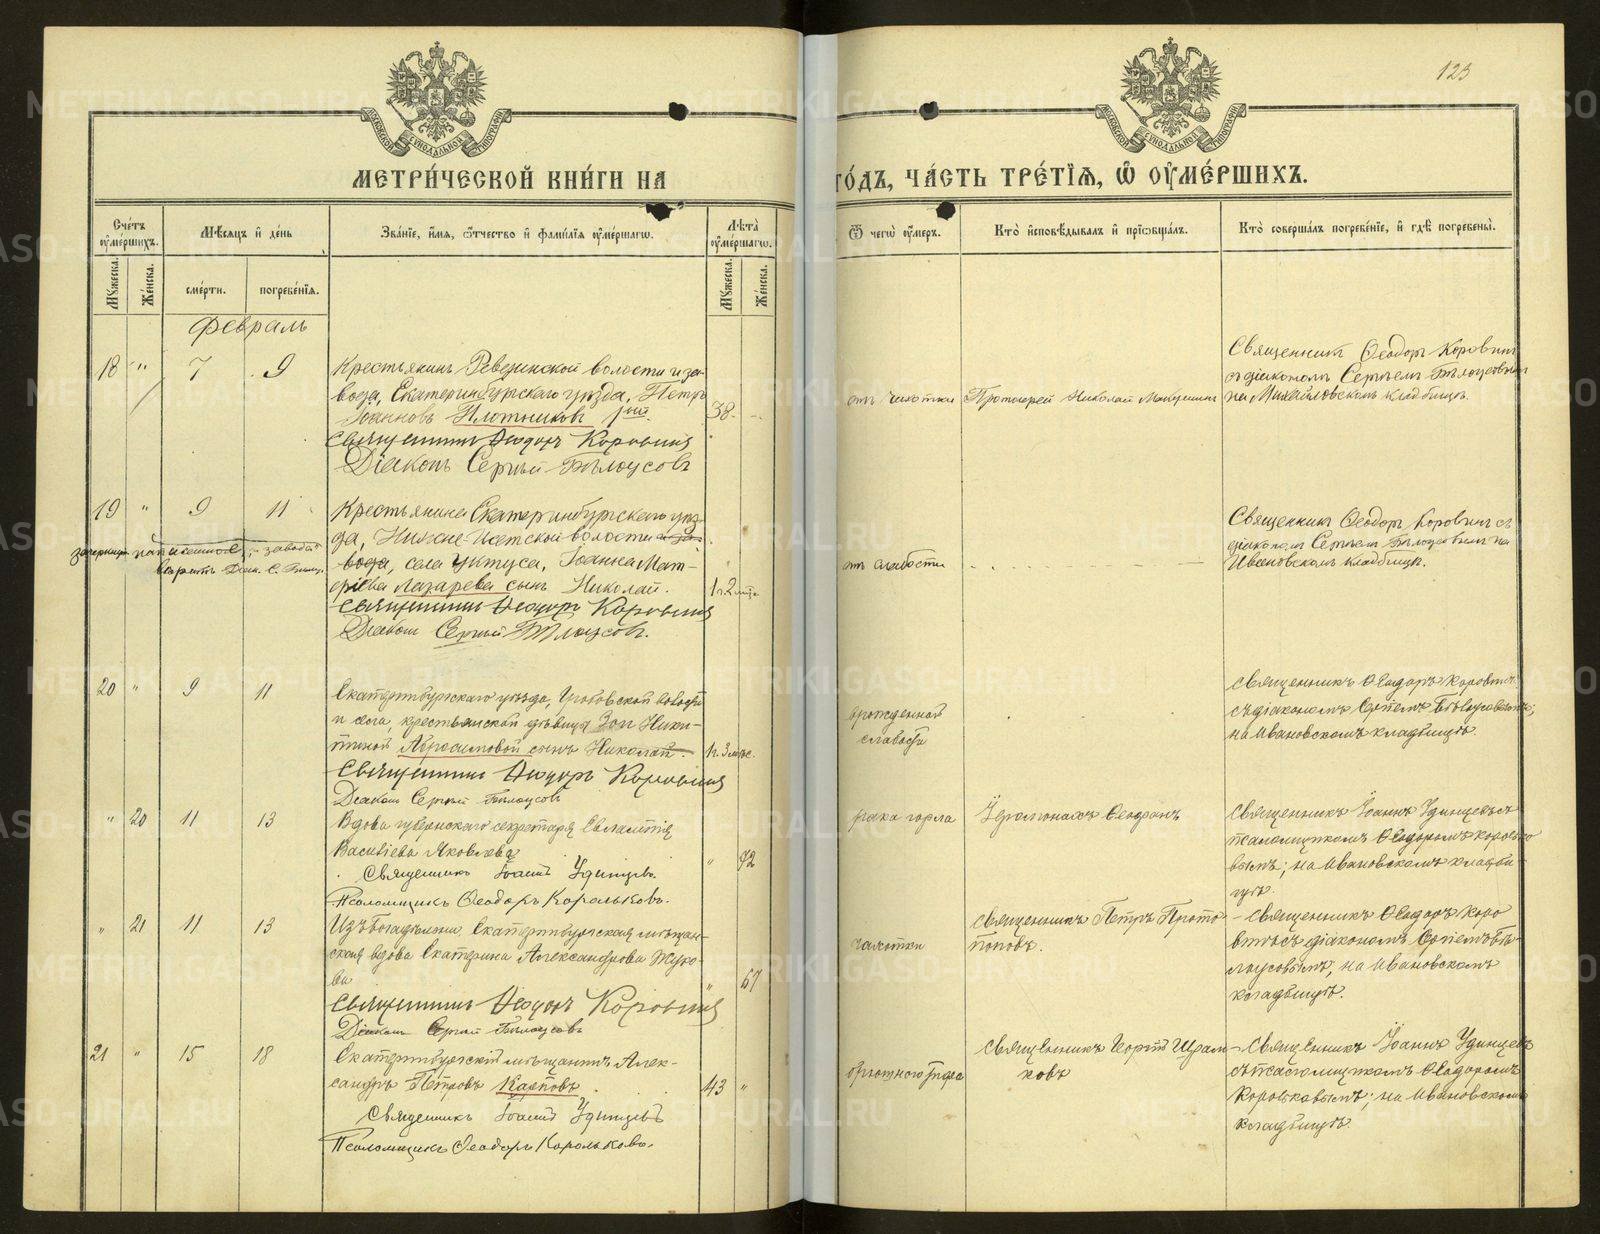 123
МЕТРИ́ЧЕСКОЙ КНИ́ГИ НА ГО́ДЪ, ЧА́СТЬ ТРЕ́ТІѦ, Ѽ ОУ҆МЕ́РШИХЪ.
Сче́тъ оу҆ме́ршихъ.
Мѣсяцъ и҆ де́нь
Зва́нїе, и҆́мѧ, ѻ҆́тчество и҆ фами́лїѧ оу҆ме́ршагѡ.
Лѣта̀ оу҆ме́ршагѡ.
Ѿ чегѡ̀ оу҆́меръ.
Кто̀ и҆сповѣ́дывалъ и҆ прїѡбща́лъ.
Кто̀ соверша́лъ погребе́нїе, и҆ гдѣ̀ погребены̀.
Мꙋ́жеска.
Же́нска.
сме́рти.
погребе́нїѧ.
Мꙋ́жеска.
Же́нска.
Февраль
18 " 7 9
Крестьянинъ Ревдинской волости и за-
вода, Екатеринбургскаго уѣзда, Петръ
Іоанновъ Плотниковъ 1ый.
38 -
Священникъ Ѳеодоръ Коровинъ
Діаконъ Сергѣй Бѣлоусовъ
отъ чахотки
Протоіерей Николай
Священникъ Ѳеодоръ Коровинъ
съ діакономъ Сергѣемъ Бѣлоусовымъ
на Михайловскомъ кладбищѣ.
19 " 9 11
Крестьянина Екатеринбургскаго уѣз-
да, Нижне-Исетской волости и за-
вода, села Уктуса, Іоанна Мат-
ѳіева Лазарева сынъ Николай.
1 г. 2 мѣс.
зачеркнутое написанное: „завода“
вѣрить Діак. С. Бѣлоус.
Священникъ Ѳеодоръ Коровинъ
Діаконъ Сергѣй Бѣлоусовъ.
отъ слабости
Священникъ Ѳеодоръ Коровинъ съ
діакономъ Сергѣемъ Бѣлоусовымъ на
Ивановскомъ кладбищѣ.
20 " 9 11
Екатеринбургскаго уѣзда, Гробовской волости
и села, крестьянской дѣвицы Зои Ники-
тиной Абросимовой сынъ Николай.
1 г. 3 мѣс.
Священникъ Ѳеодоръ Коровинъ
Діаконъ Сергѣй Бѣлоусовъ
врожденной
слабости
Священникъ Ѳеодоръ Коровинъ
съ діакономъ Сергѣемъ Бѣлоусовымъ;
на Ивановскомъ кладбищѣ.
" 20 11 13
Вдова губернскаго секретаря Евлампія
Васильева Яковлева
" 72
Священникъ Іоаннъ Удинцевъ.
Псаломщикъ Ѳеодоръ Корольковъ.
рака горла
Іеромонахъ Ѳеофанъ
Священникъ Іоаннъ Удинцевъ съ
псаломщикомъ Ѳеодоромъ Королько-
вымъ; на Ивановскомъ кладби-
щѣ.
" 21 11 13
Изъ богадѣльни, Екатеринбургская мѣщан-
ская вдова Екатерина Александрова Жуко-
ва
" 67
Священникъ Ѳеодоръ Коровинъ
Діаконъ Сергѣй Бѣлоусовъ
чахотки
Священникъ Петръ Прото-
поповъ.
Священникъ Ѳеодоръ Коро
винъ съ діакономъ Сергѣемъ Бѣ-
лоусовымъ, на Ивановскомъ
кладбищѣ.
21 " 15 18
Екатеринбургскій мѣщанинъ Алек-
сандръ Петровъ Карповъ
43 "
Священникъ Іоаннъ Удинцевъ
Псаломщикъ Ѳеодоръ Корольковъ.
брюшного тифа
Священникъ Георгій
Священникъ Іоаннъ Удинцевъ
съ псаломщикомъ Ѳеодоромъ
Корольковымъ; на Ивановскомъ
кладбищѣ.